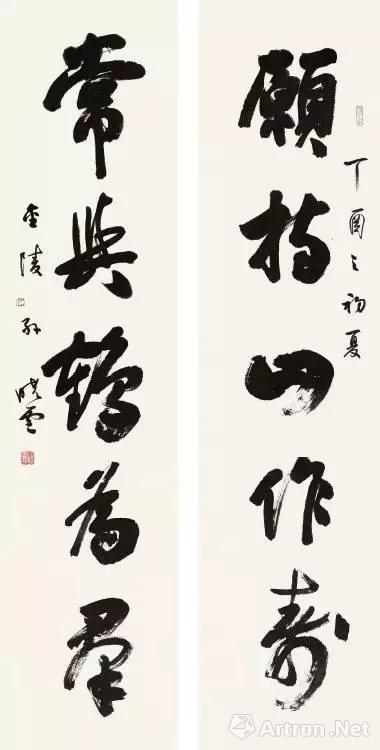 願持山作壽
丁酉之初夏
常與鶴為羣
金陵孫曉雲
雅昌艺术网
Artron.Net